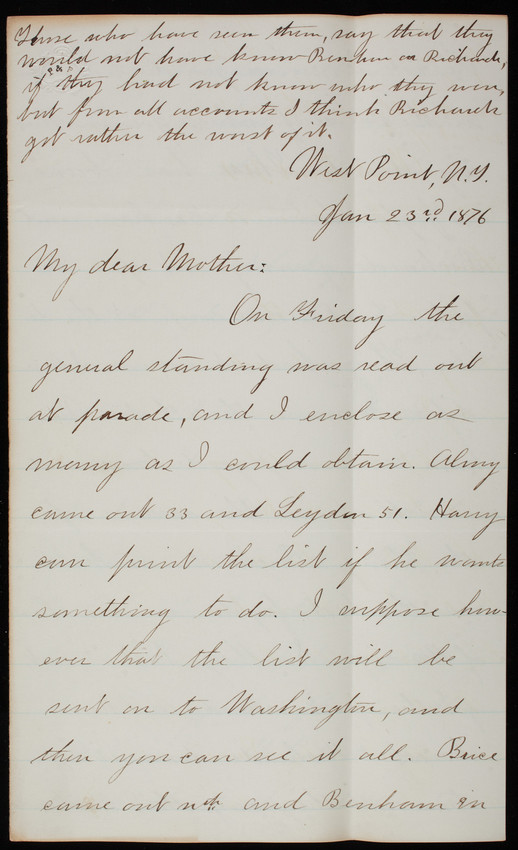 Those who have seen them, say that they
would not have know Benham or Richards,
if they had not know who they were,
but from all accounts I think Richards
got rather the worst of it.
West Point, N.Y.
Jan 23rd 1876
My dear Mother:
On Friday the
general standing was read out
at parade, and I enclose as
many as I could obtain. Almy
came out 33 and Leyden 51. Harry
can print the list if he wants
something to do. I suppose how-
ever that the list will be
sent on to Washington, and
then you can see it all. Brice
came out and Benham in